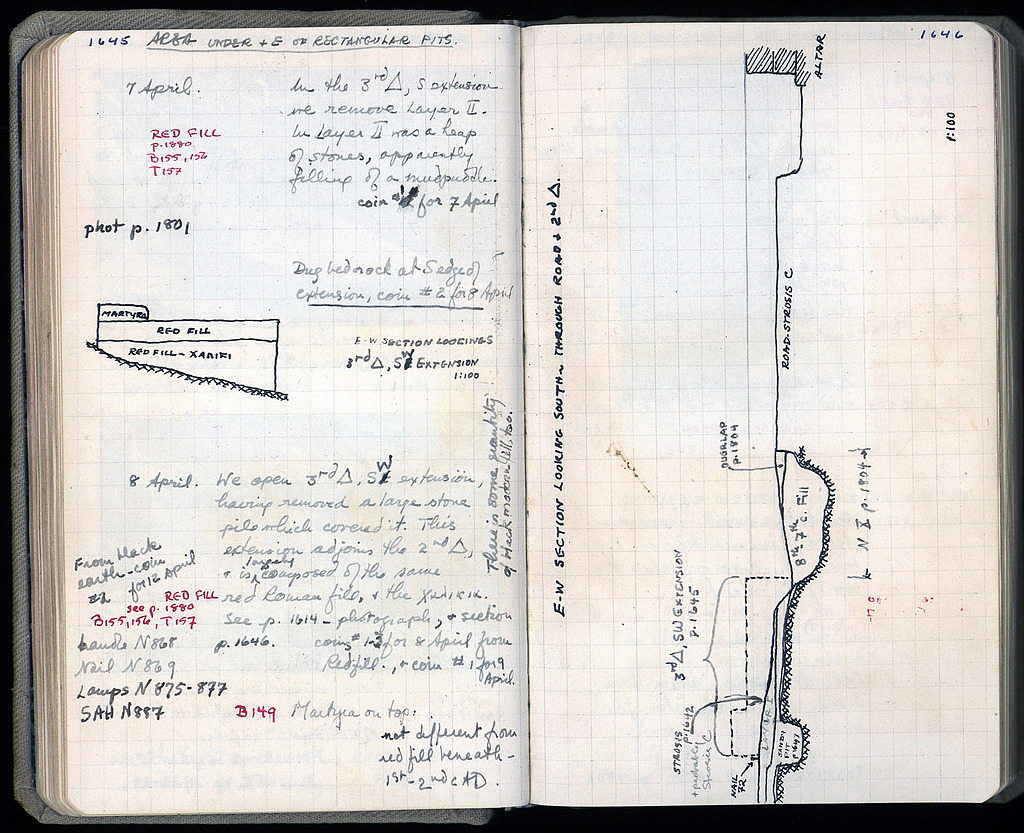 1645 AREA UNDER + E OF RECTANGULAR PITS.
7 April.
In the 3rd Δ, S extension
we remove Layer II.
In Layer II was a heap
of stones, apparently
filling of a mudpuddle.
coin #2 for 7 April
RED FILL
p.1880
B155, 156
T157
phot p. 1801
Dug bedrock at S edge of
extension, coin #2 for 8 April
MARTYRA
RED FILL
RED FILL - XARIKI
E-W SECTION LOOKING S
3rd Δ, SW EXTENSION
1:100
There is some quantity
of black material, too.
8 April. We open 3rd Δ, SW extension,
having removed a large stone
pile which covered it. This
extension adjoins the 2nd Δ,
+ is largely composed of the same
red Roman fill, + the XARIKI.
See p. 1614 - photograph, + section
p. 1646. coins # 1-3 for 8 April from
Red fill., + coin #1 for 9
April.
From black
earth - coin
#2 for 12 April
RED FILL
see p. 1880
B155, 156, T157
handle N868
Nail N869
Lamps N875-877
SAH N887
B149 Martyra on top:
not different from
red fill beneath -
1st - 2nd c AD.
1646
E-W SECTION LOOKING SOUTH - THROUGH ROAD + 2nd Δ.
1:100
ALTAR
ROAD: STROSIS C
OVERLAP
p. 1804
8th-7th c. Fill
N I p. 1804
3rd Δ, SW EXTENSION
p. 1645
STROSIS
p. 1642
+ probably
Strosis C
NAIL
72
SANDY
PIT
p. 1647